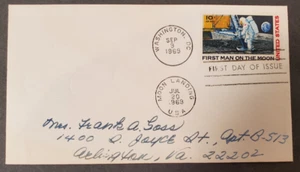 WASHINGTON, DC
SEP
9
1969
10¢
UNITED STATES
FIRST MAN ON THE MOON
FIRST DAY OF ISSUE
MOON LANDING
JUL
20
1969
USA
Mrs. Frank A. Goss
1400 S. Joyce St., Apt. B-513
Arlington, Va. 22202